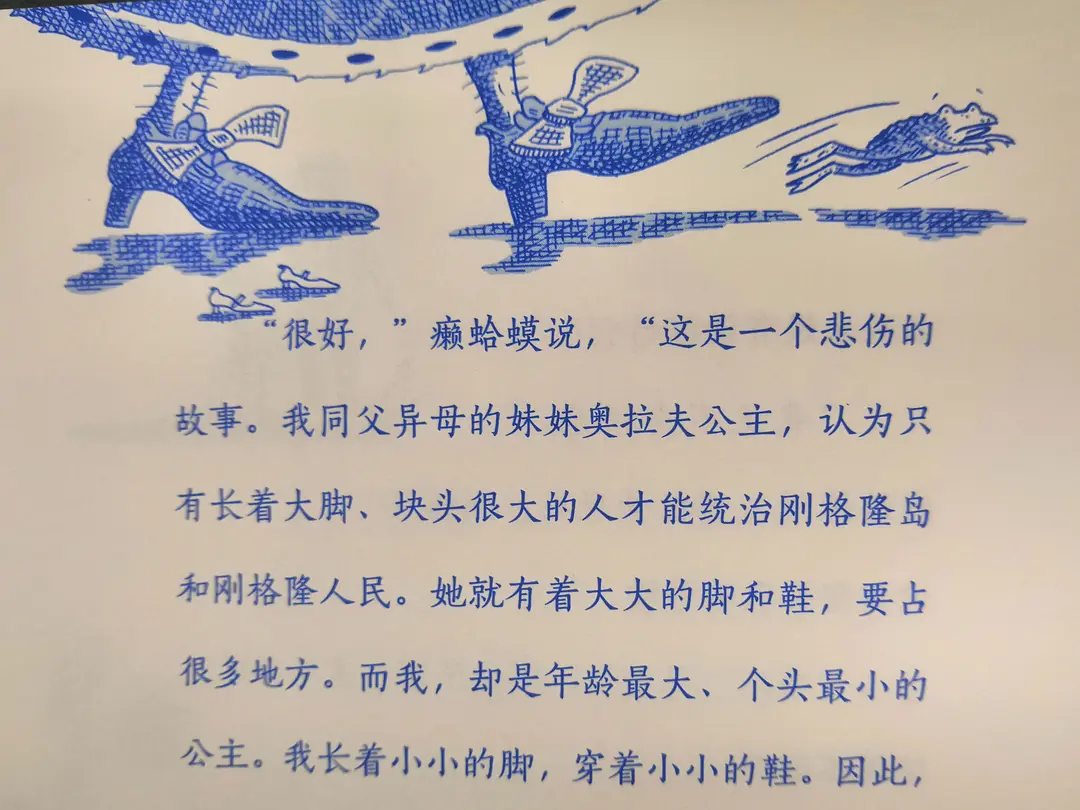 “很好，”癞蛤蟆说，“这是一个悲伤的
故事。我同父异母的妹妹奥拉夫公主，认为只
有长着大脚、块头很大的人才能统治刚格隆岛
和刚格隆人民。她就有着大大的脚和鞋，要占
很多地方。而我，却是年龄最大、个头最小的
公主。我长着小小的脚，穿着小小的鞋。因此，